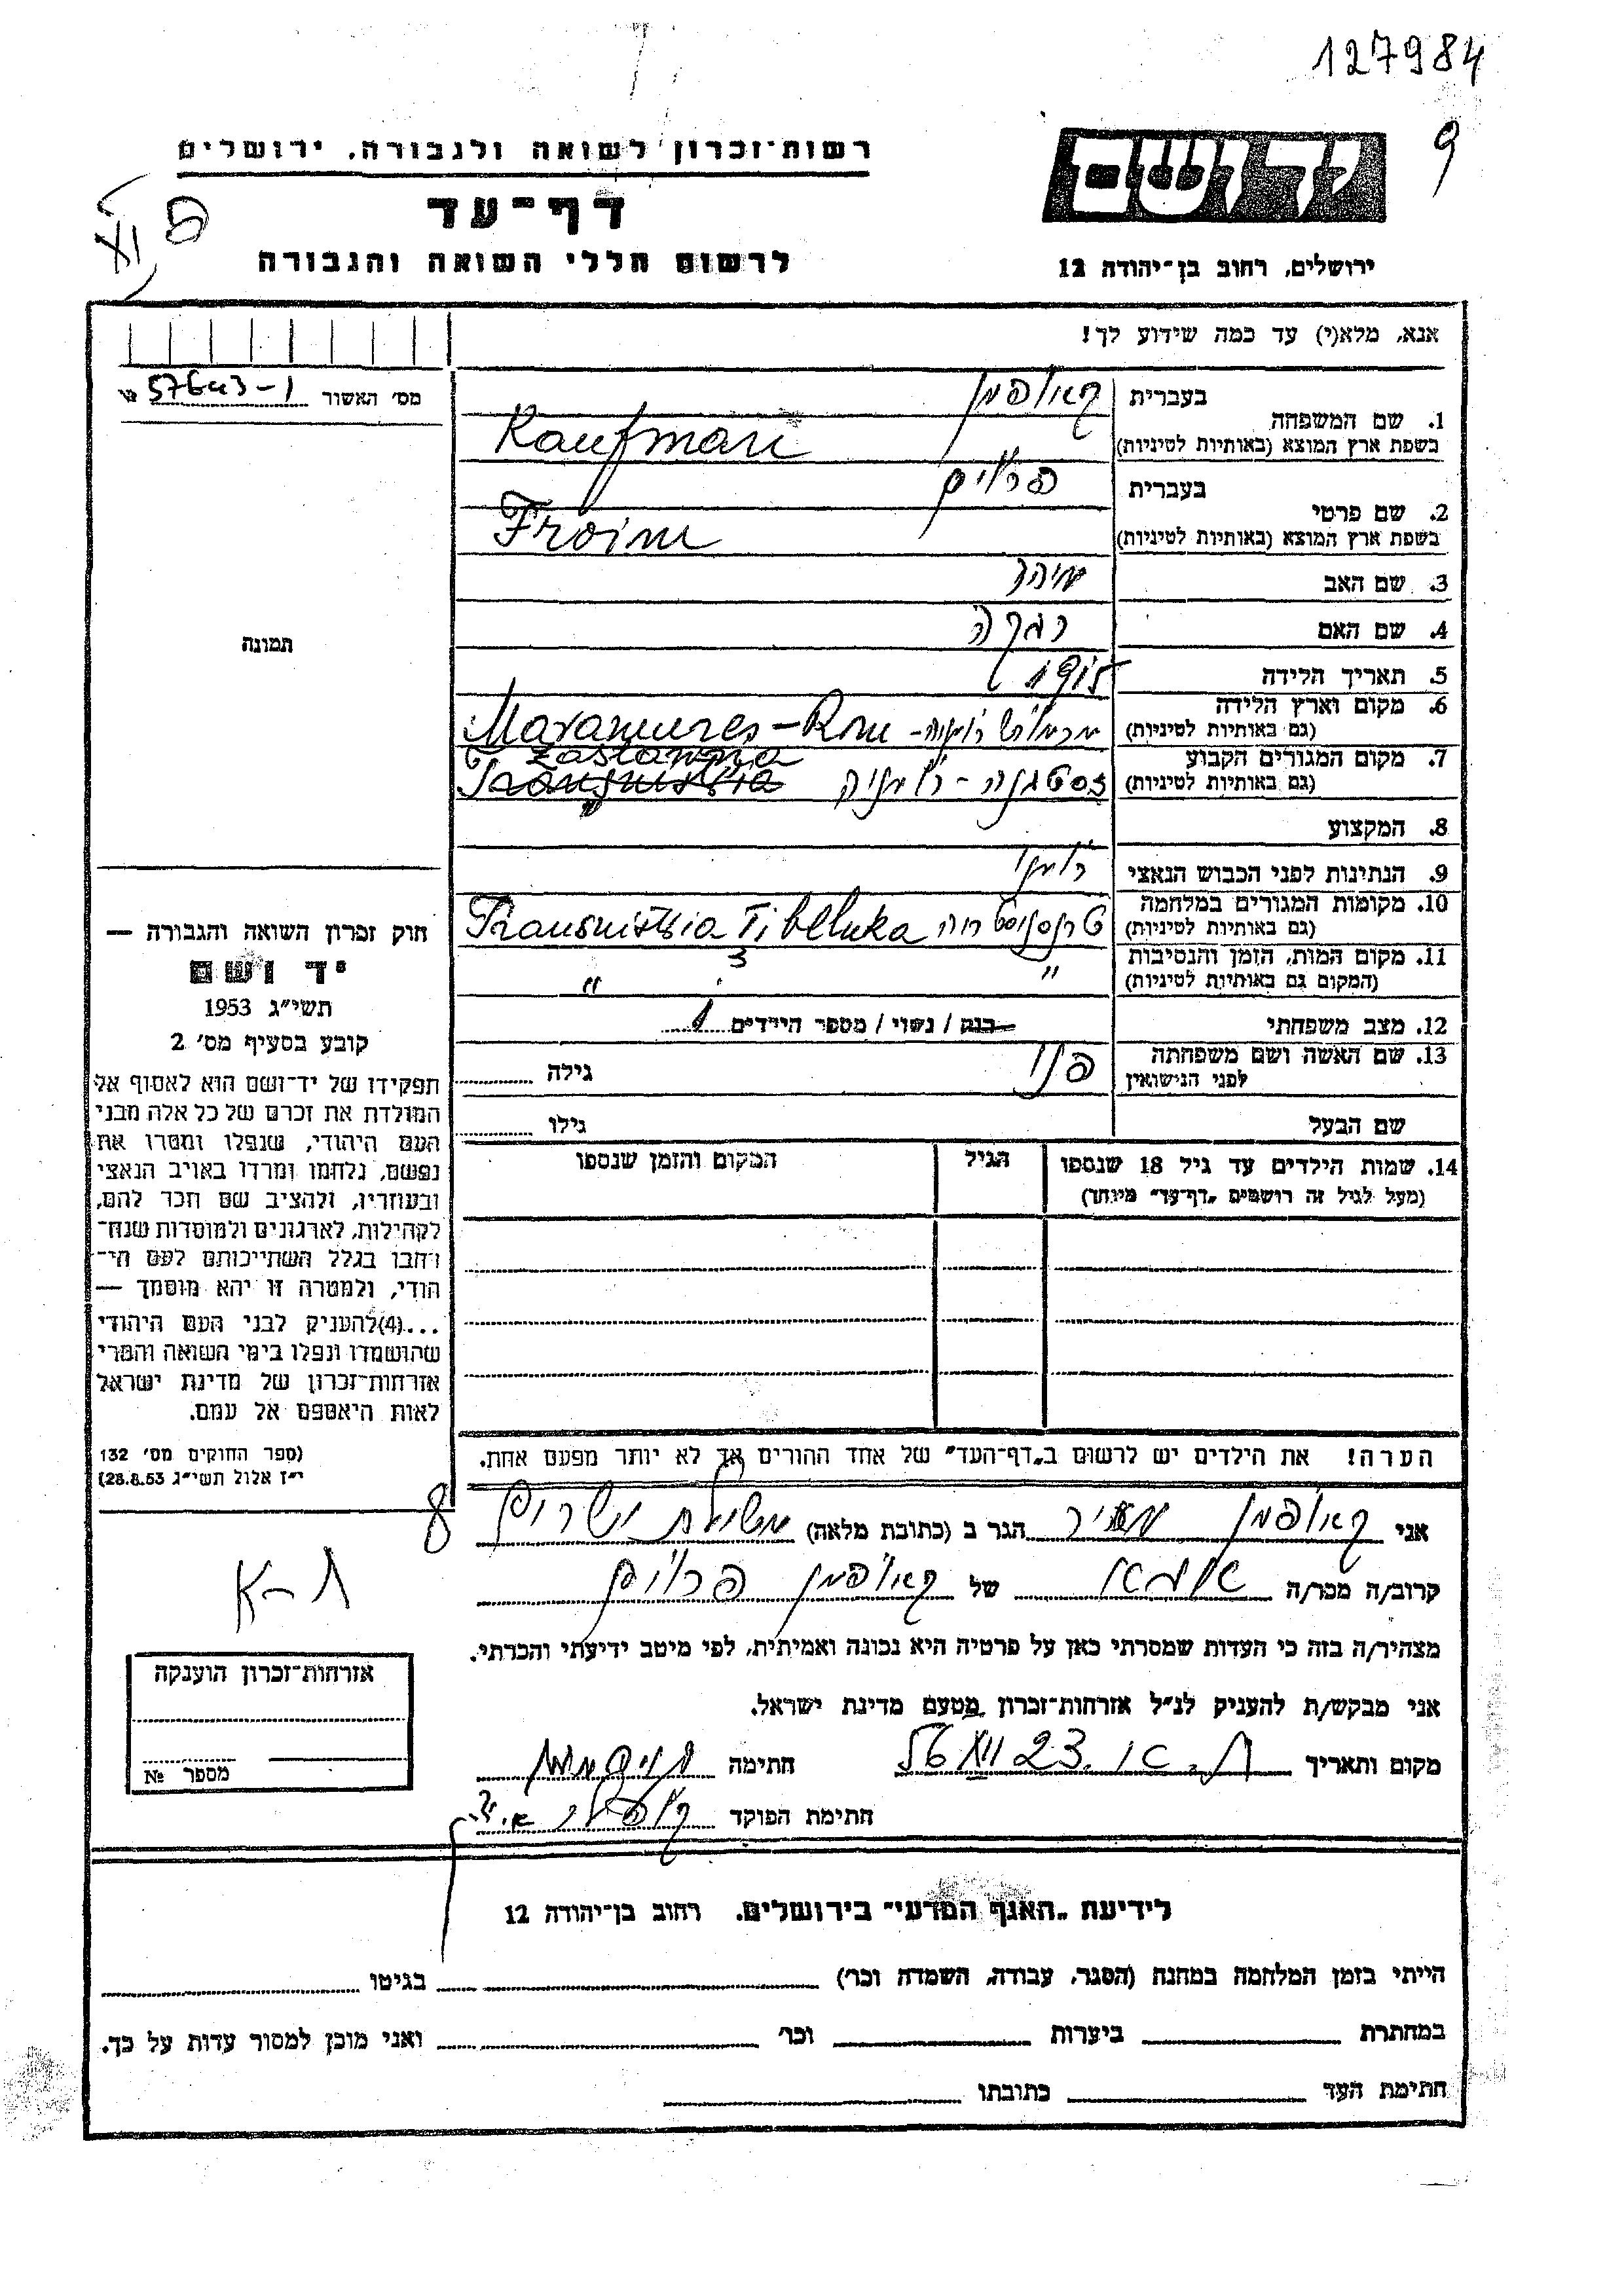 127984
9
רשות־זכרון לשואה ולגבורה, ירושלים
דף־עד
לרשום חללי השואה והגבורה
יד ושם
ירושלים, רחוב בן־יהודה 12
אנא, מלא(י) עד כמה שידוע לך!
מס׳ האשור 57643-1
תמונה
1. שם המשפחה
בעברית קאופמן
בשפת ארץ המוצא (באותיות לטיניות) Kaufman
2. שם פרטי
בעברית פרוים
בשפת ארץ המוצא (באותיות לטיניות) Froim
3. שם האב
4. שם האם רבקה
5. תאריך הלידה 1915
6. מקום וארץ הלידה
(גם באותיות לטיניות) Maramures - Rom
7. מקום המגורים הקבוע Zastawna
(גם באותיות לטיניות) זסטבנה - רומניה Transnistria
8. המקצוע
9. הנתינות לפני הכבוש הנאצי רומני
10. מקומות המגורים במלחמה
(גם באותיות לטיניות) טרנסניסטריה Transnistria
11. מקום המות, הזמן והנסיבות
(המקום גם באותיות לטיניות) " "
12. מצב משפחתי רווק / נשוי / מספר הילדים 1
13. שם האשה ושם משפחתה
לפני הנישואין גילה
שם הבעל גילו
14. שמות הילדים עד גיל 18 שנספו הגיל המקום והזמן שנספו
(מעל לגיל זה רושמים „דף־עד״ מיוחד)
הערה! את הילדים יש לרשום ב„דף־העד״ של אחד ההורים אך לא יותר מפעם אחת.
חוק זכרון השואה והגבורה —
יד ושם
תשי״ג 1953
קובע בסעיף מס׳ 2
תפקידו של יד־ושם הוא לאסוף אל
המולדת את זכרם של כל אלה מבני
העם היהודי, שנפלו ומסרו את
נפשם, נלחמו ומרדו באויב הנאצי
ובעוזריו, ולהציב שם וזכר להם,
לקהילות, לארגונים ולמוסדות שנח־
רבו בגלל השתייכותם לעם הי־
הודי, ולמטרה זו יהא מוסמך —
...(4)להעניק לבני העם היהודי
שהושמדו ונפלו בימי השואה והמרי
אזרחות־זכרון של מדינת ישראל
לאות היאספם אל עמם.
(ספר החוקים מס׳ 132
י״ז אלול תשי״ג 28.8.53)
אני קאופמן מאיר הגר ב (כתובת מלאה)
קרוב/ה מכר/ה של קאופמן פרוים
מצהיר/ה בזה כי העדות שמסרתי כאן על פרטיה היא נכונה ואמיתית, לפי מיטב ידיעתי והכרתי.
אני מבקש/ת להעניק לנ״ל אזרחות־זכרון מטעם מדינת ישראל.
מקום ותאריך ת.א. 23 חתימה
חתימת הפוקד
אזרחות־זכרון הוענקה
מספר №
לידיעת „האגף המדעי״ בירושלים, רחוב בן־יהודה 12
הייתי בזמן המלחמה במחנה (הסגר, עבודה, השמדה וכר׳) בגיטו
במחתרת ביערות וכר׳ ואני מוכן למסור עדות על כך.
חתימת העד כתובתו